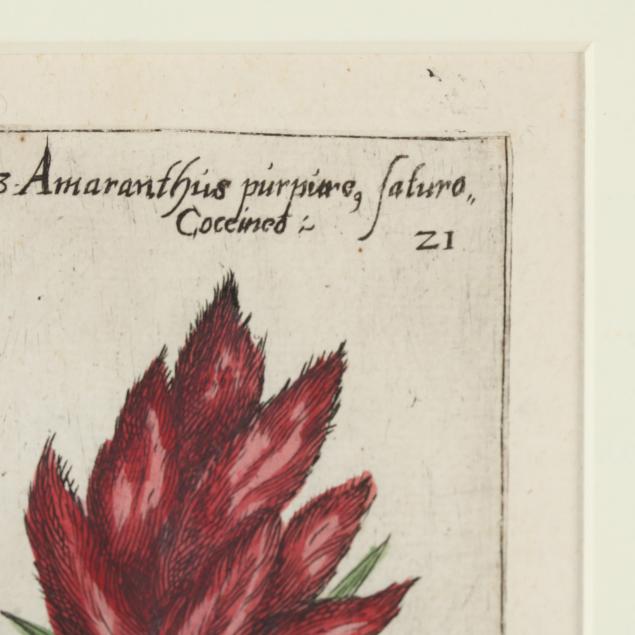 3. Amaranthus purpureꝰ saturo„
Coccineo :~
21